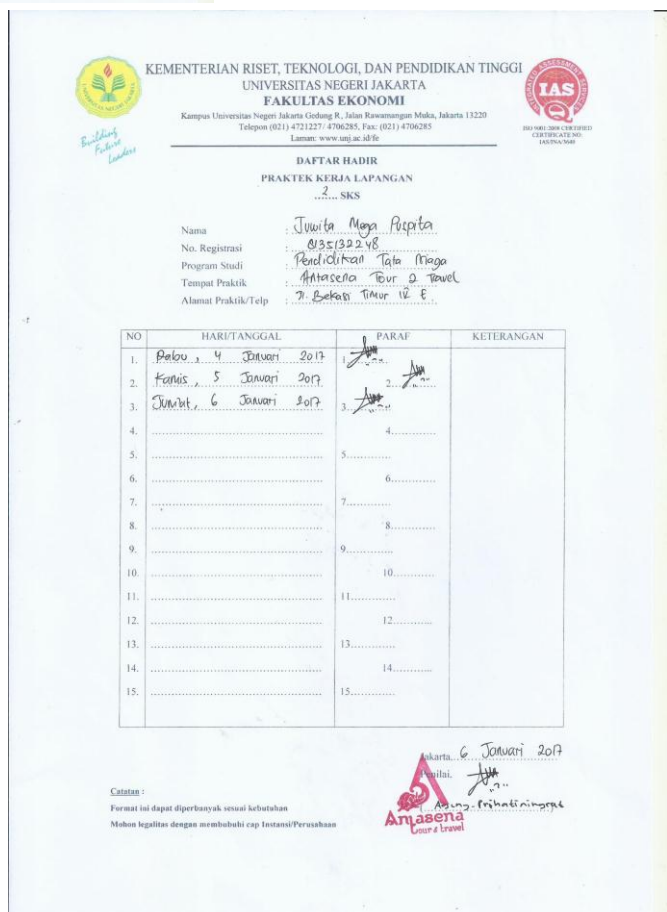 KEMENTERIAN RISET, TEKNOLOGI, DAN PENDIDIKAN TINGGI
UNIVERSITAS NEGERI JAKARTA
FAKULTAS EKONOMI
Kampus Universitas Negeri Jakarta Gedung R, Jalan Rawamangun Muka, Jakarta 13220
Telepon (021) 4721227/ 4706285, Fax: (021) 4706285
Laman: www.unj.ac.id/fe
Building
Future
Leaders
IAS
ISO 9001:2008 CERTIFIED
CERTIFICATE NO:
DAFTAR HADIR
PRAKTEK KERJA LAPANGAN
2 SKS
Nama : Juwita Mega Puspita
No. Registrasi : 8135132248
Program Studi : Pendidikan Tata Niaga
Tempat Praktik : Antasena Tour & Travel
Alamat Praktik/Telp : Jl. Bekasi Timur IX E.
NO HARI/TANGGAL PARAF KETERANGAN
1. Rabu, 4 Januari 2017 1.
2. Kamis, 5 Januari 2017 2.
3. Jumat, 6 Januari 2017 3.
4. 4.
5. 5.
6. 6.
7. 7.
8. 8.
9. 9.
10. 10.
11. 11.
12. 12.
13. 13.
14. 14.
15. 15.
Jakarta, 6 Januari 2017
Penilai,
Catatan :
Format ini dapat diperbanyak sesuai kebutuhan
Mohon legalitas dengan membubuhi cap Instansi/Perusahaan
Antasena
tour & travel